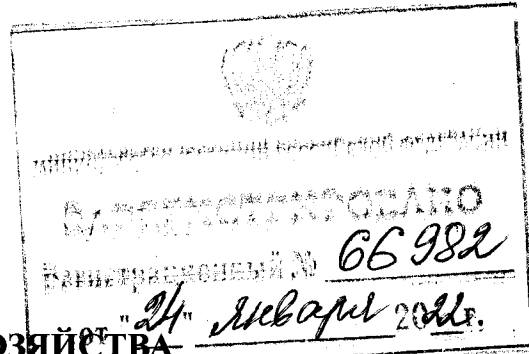 МИНИСТЕРСТВО ЮСТИЦИИ РОССИЙСКОЙ ФЕДЕРАЦИИ
ЗАРЕГИСТРИРОВАНО
Регистрационный № 66982
от "24" января 2022г.
ОЗЯЙСТВА